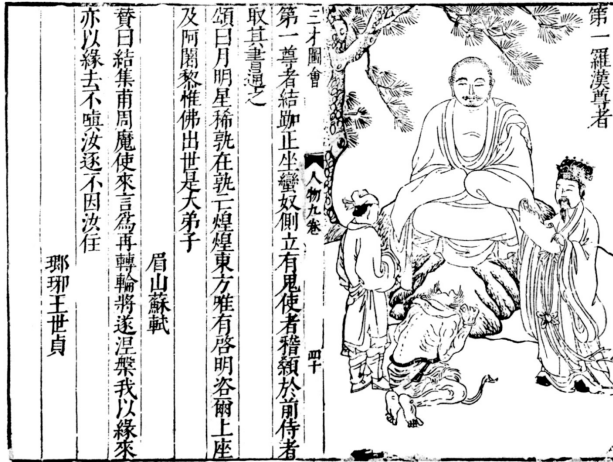 第一羅漢尊者
三才圖會
人物九卷
四十
第一尊者結跏正坐蠻奴側立有鬼使者稽顙於前侍者
取其書通之
頌曰月明星稀孰在孰亡煌煌東方惟有啓明咨爾上座
及阿闍黎惟佛出世是大弟子
眉山蘇軾
贊曰結集甫周魔使來言爲再轉輪將遂涅槃我以緣來
亦以緣去不嗔汝逐不因汝住
瑯琊王世貞